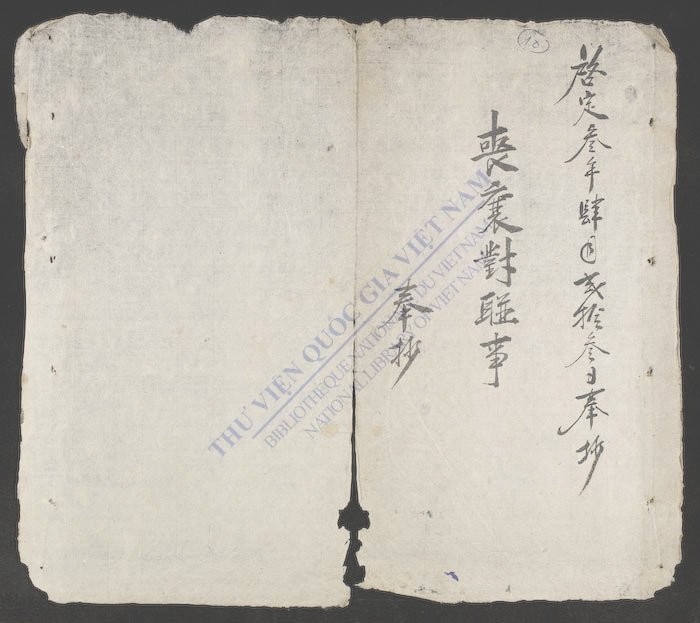 啓定叁年肆月弍拾叁日奉抄
喪裏對聯事
奉抄
18
THƯ VIỆN QUỐC GIA VIỆT NAM
BIBLIOTHÈQUE NATIONALE DU VIETNAM
NATIONAL LIBRARY OF VIETNAM